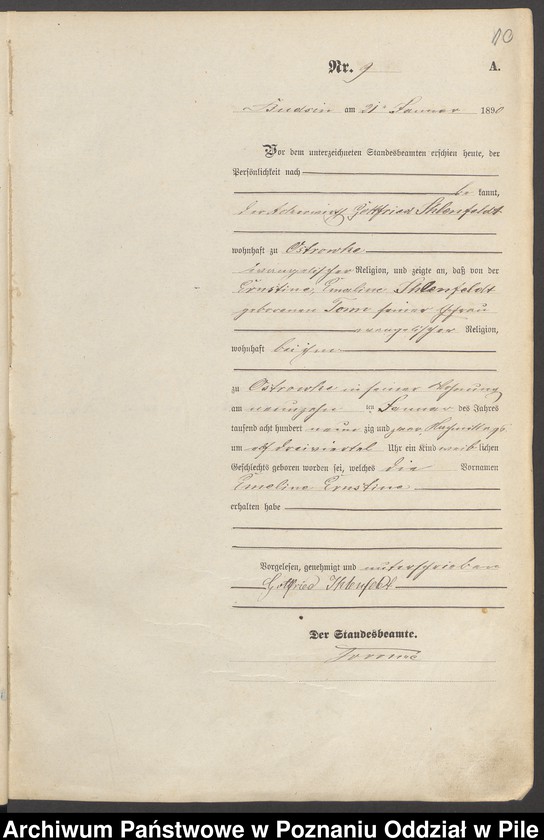 110
Nr. 9 A.
Budsin am 21ten Januar 1890
Vor dem unterzeichneten Standesbeamten erschien heute, der
Persönlichkeit nach
be kannt,
der Gottfried Ihlenfeldt
wohnhaft zu Ostrowke
evangelischer Religion, und zeigte an, daß von der
Ernstine, Emaline Ihlenfeldt
geborenen seiner Ehefrau
evangelischer Religion,
wohnhaft bei ihm
zu Ostrowke in seiner Wohnung
am neunzehn ten Januar des Jahres
tausend acht hundert neun zig und zwar Nachmittags
um dreiviertel Uhr ein Kind weib lichen
Geschlechts geboren worden sei, welches die Vornamen
Emaline Ernstine
erhalten habe
Vorgelesen, genehmigt und unterschrieben
Gottfried Ihlenfeldt
Der Standesbeamte.
Archiwum Państwowe w Poznaniu Oddział w Pile